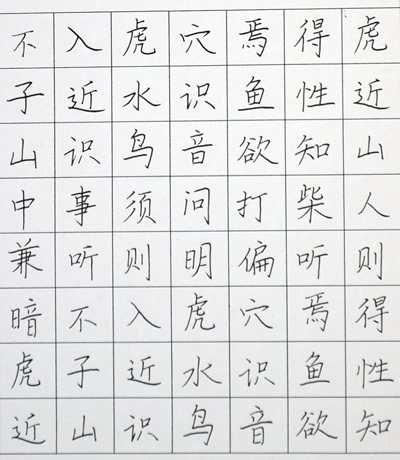 不入虎穴焉得虎
子近水识鱼性近
山识鸟音欲知山
中事须问打柴人
兼听则明偏听则
暗不入虎穴焉得
虎子近水识鱼性
近山识鸟音欲知